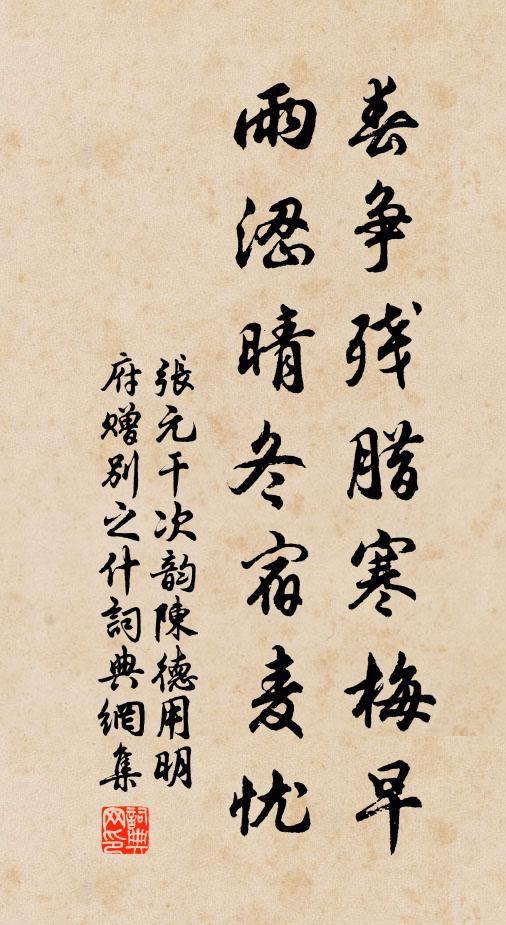 春争残腊寒梅早
雨涩晴冬宿麦忧
張元干次韵陳德用明
府赠别之什詞典網集
詞典网印